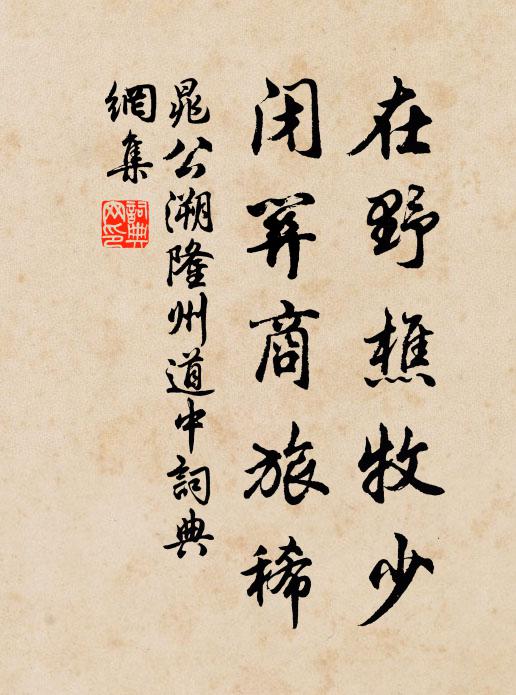 在野樵牧少
闭关商旅稀
晁公溯隆州道中詞典
網集
詞典
网印